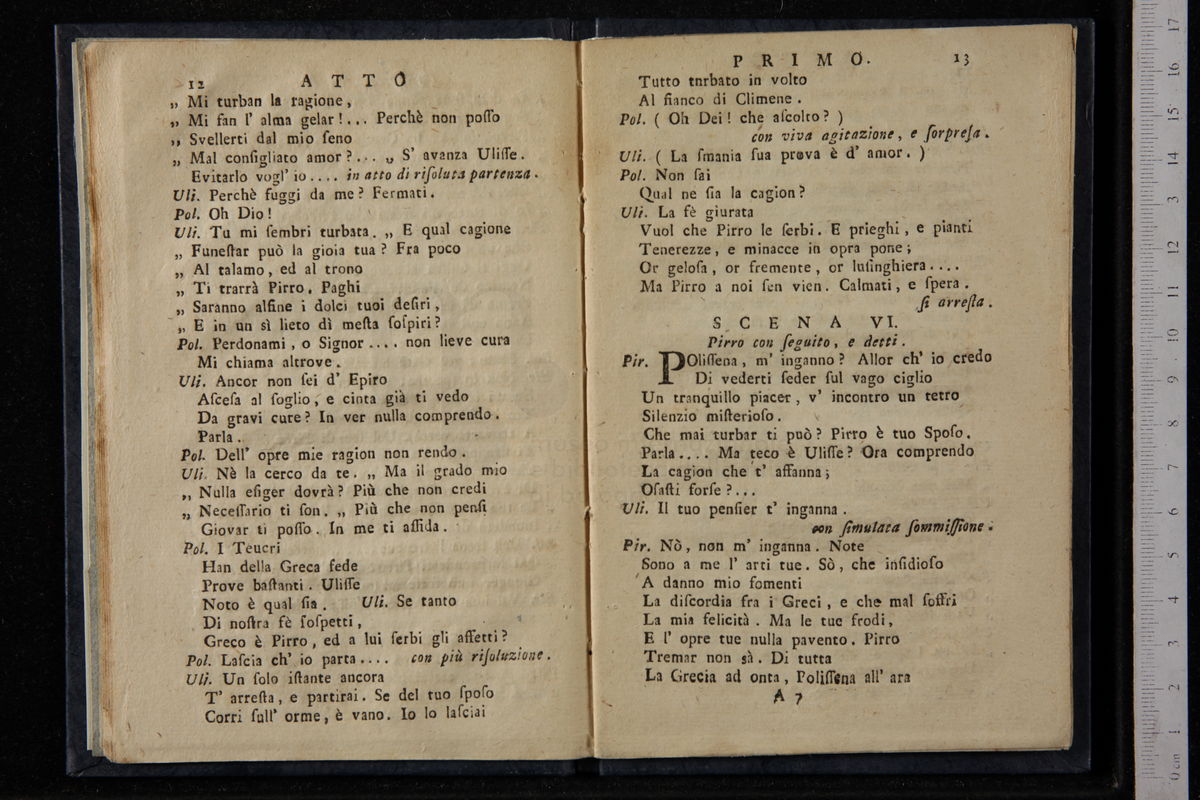 12 A T T O
„ Mi turban la ragione,
„ Mi fan l' alma gelar!... Perchè non poſſo
„ Svellerti dal mio ſeno
„ Mal conſigliato amor?... „ S' avanza Uliſſe.
Evitarlo vogl' io.... in atto di riſoluta partenza.
Uli. Perchè fuggi da me? Fermati.
Pol. Oh Dio!
Uli. Tu mi ſembri turbata. „ E qual cagione
„ Funeſtar può la gioia tua? Fra poco
„ Al talamo, ed al trono
„ Ti trarrà Pirro. Paghi
„ Saranno alfine i dolci tuoi deſiri,
„ E in un sì lieto dì meſta ſoſpiri?
Pol. Perdonami, o Signor.... non lieve cura
Mi chiama altrove.
Uli. Ancor non ſei d' Epiro
Aſceſa al ſoglio, e cinta già ti vedo
Da gravi cure? In ver nulla comprendo.
Parla.
Pol. Dell' opre mie ragion non rendo.
Uli. Nè la cerco da te. „ Ma il grado mio
„ Nulla eſiger dovrà? Più che non credi
„ Neceſſario ti ſon. „ Più che non penſi
Giovar ti poſſo. In me ti affida.
Pol. I Teucri
Han della Greca fede
Prove baſtanti. Uliſſe
Noto è qual ſia. Uli. Se tanto
Di noſtra fè ſoſpetti,
Greco è Pirro, ed a lui ſerbi gli affetti?
Pol. Laſcia ch' io parta.... con più riſoluzione.
Uli. Un ſolo iſtante ancora
T' arreſta, e partirai. Se del tuo ſpoſo
Corri full' orme, è vano. Io lo laſciai
P R I M O. 13
Tutto tnrbato in volto
Al fianco di Climene.
Pol. ( Oh Dei! che aſcolto? )
con viva agitazione, e ſorpreſa.
Uli. ( La ſmania ſua prova è d' amor. )
Pol. Non ſai
Qual ne ſia la cagion?
Uli. La fè giurata
Vuol che Pirro le ſerbi. E prieghi, e pianti
Tenerezze, e minacce in opra pone;
Or geloſa, or fremente, or luſinghiera....
Ma Pirro a noi ſen vien. Calmati, e ſpera.
ſi arreſta.
S C E N A VI.
Pirro con ſeguito, e detti.
Pir. POliſſena, m' inganno? Allor ch' io credo
Di vederti ſeder ſul vago ciglio
Un tranquillo piacer, v' incontro un tetro
Silenzio miſterioſo.
Che mai turbar ti può? Pirro è tuo Spoſo.
Parla.... Ma teco è Uliſſe? Ora comprendo
La cagion che t' affanna;
Oſaſti forſe?...
Uli. Il tuo penſier t' inganna.
con ſimulata ſommiſſione.
Pir. Nò, non m' inganna. Note
Sono a me l' arti tue. Sò, che inſidioſo
A danno mio fomenti
La diſcordia fra i Greci, e che mal ſoffri
La mia felicità. Ma le tue frodi,
E l' opre tue nulla pavento. Pirro
Tremar non sà. Di tutta
La Grecia ad onta, Poliſſena all' ara
A 7
0 cm 1 2 3 4 5 6 7 8 9 10 11 12 13 14 15 16 17